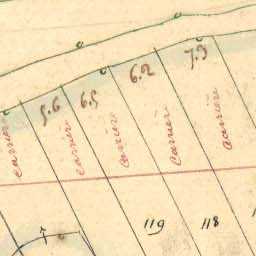 7.3
6.2
6.5
5.6
carrière
carrière
carrière
carrière
119
118